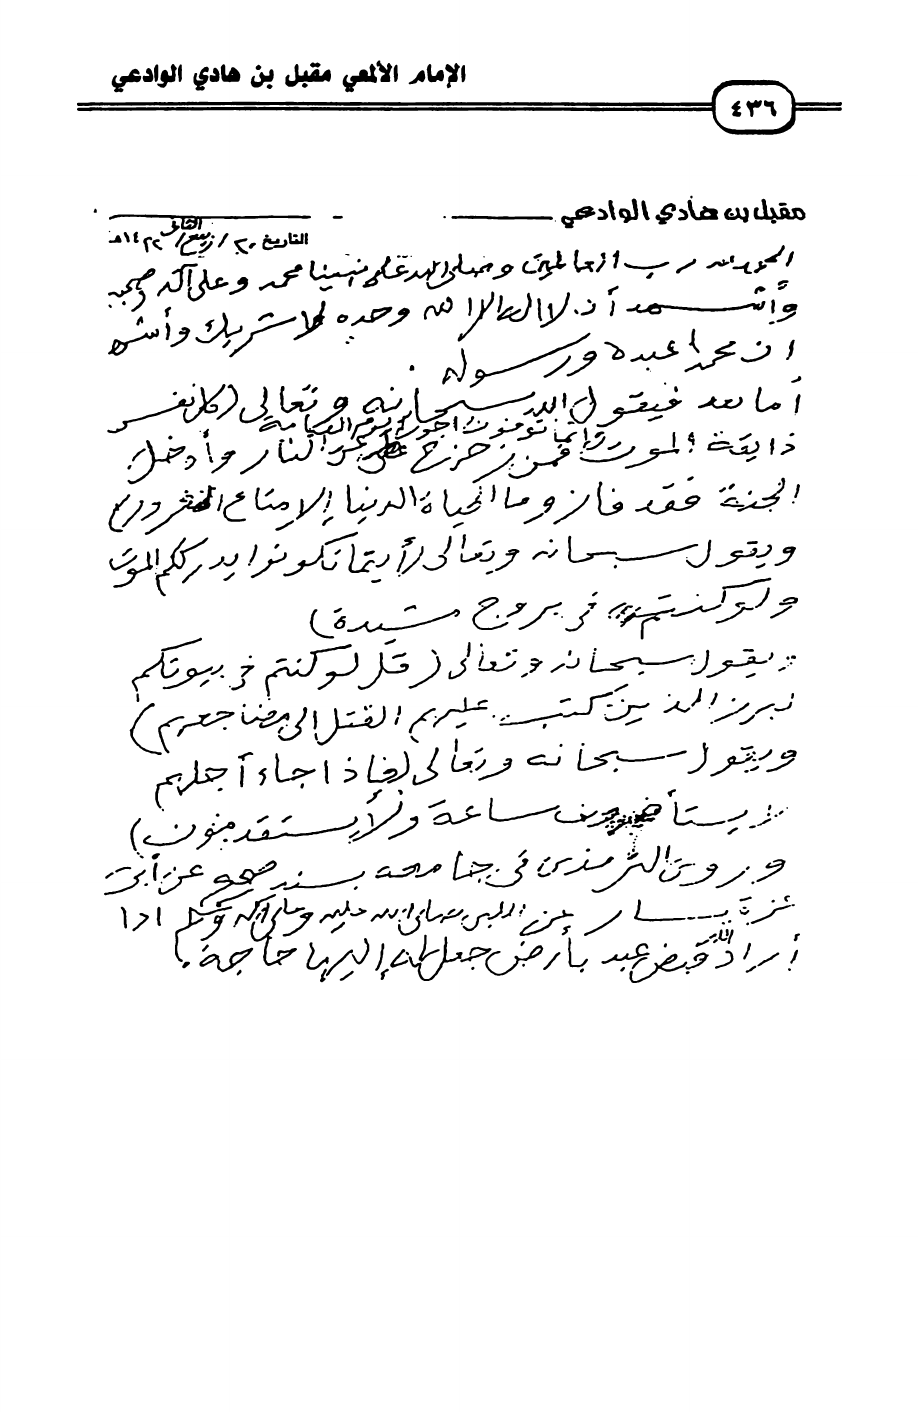 الإمام الألمعي مقبل بن هادي الوادعي
٤٣٦
مقبل بن هادي الوادعي
التاريخ ٢٠ / ربيع الثاني / ١٤٢٢هـ
الحمد لله رب العالمين وصلى الله على نبينا محمد وعلى آله وصحبه
وأشهد أن لا إله إلا الله وحده لا شريك وأشهد
ان محمدا عبده ورسوله .
أما بعد فيقول الله سبحانه وتعالى (كل نفس
ذايقة الموت وإنما توفون اجوركم يوم القيامة فمن زحزح عن النار وأدخل
الجنة فقد فاز وما الحياة الدنيا إلا متاع الغرور)
ويقول سبحانه وتعالى (أينما تكونوا يدرككم الموت
ولو كنتم في بروج مشيدة)
ويقول سبحانه وتعالى (قل لو كنتم في بيوتكم
لبرز الذين كتب عليهم القتل الى مضاجعهم)
ويقول سبحانه وتعالى (فإذا جاء أجلهم
لا يستأخرون ساعة ولا يستقدمون)
وروى الترمذي في جامعه بسند صحيح عن أبي
عزة يسار عن النبي صلى الله عليه وعلى آله وسلم اذا
أراد الله قبض عبد بأرض جعل له إليها حاجة .